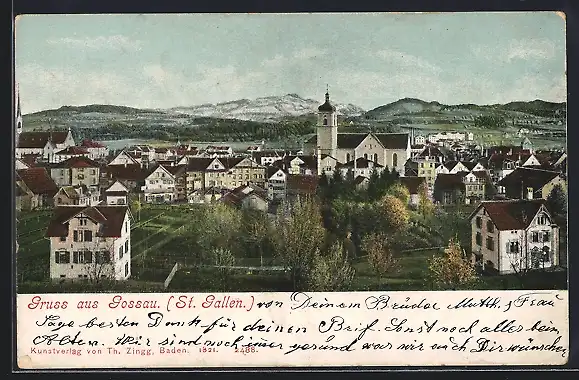 Gruss aus Gossau. (St. Gallen.) von Deinem Bruder & Frau
Sage besten Dank für deinen Brief. Sonst noch alles beim
Alten. Wir sind noch immer gesund was wir auch Dir wünschen
Kunstverlag von Th. Zingg, Baden. 1521. 2486.